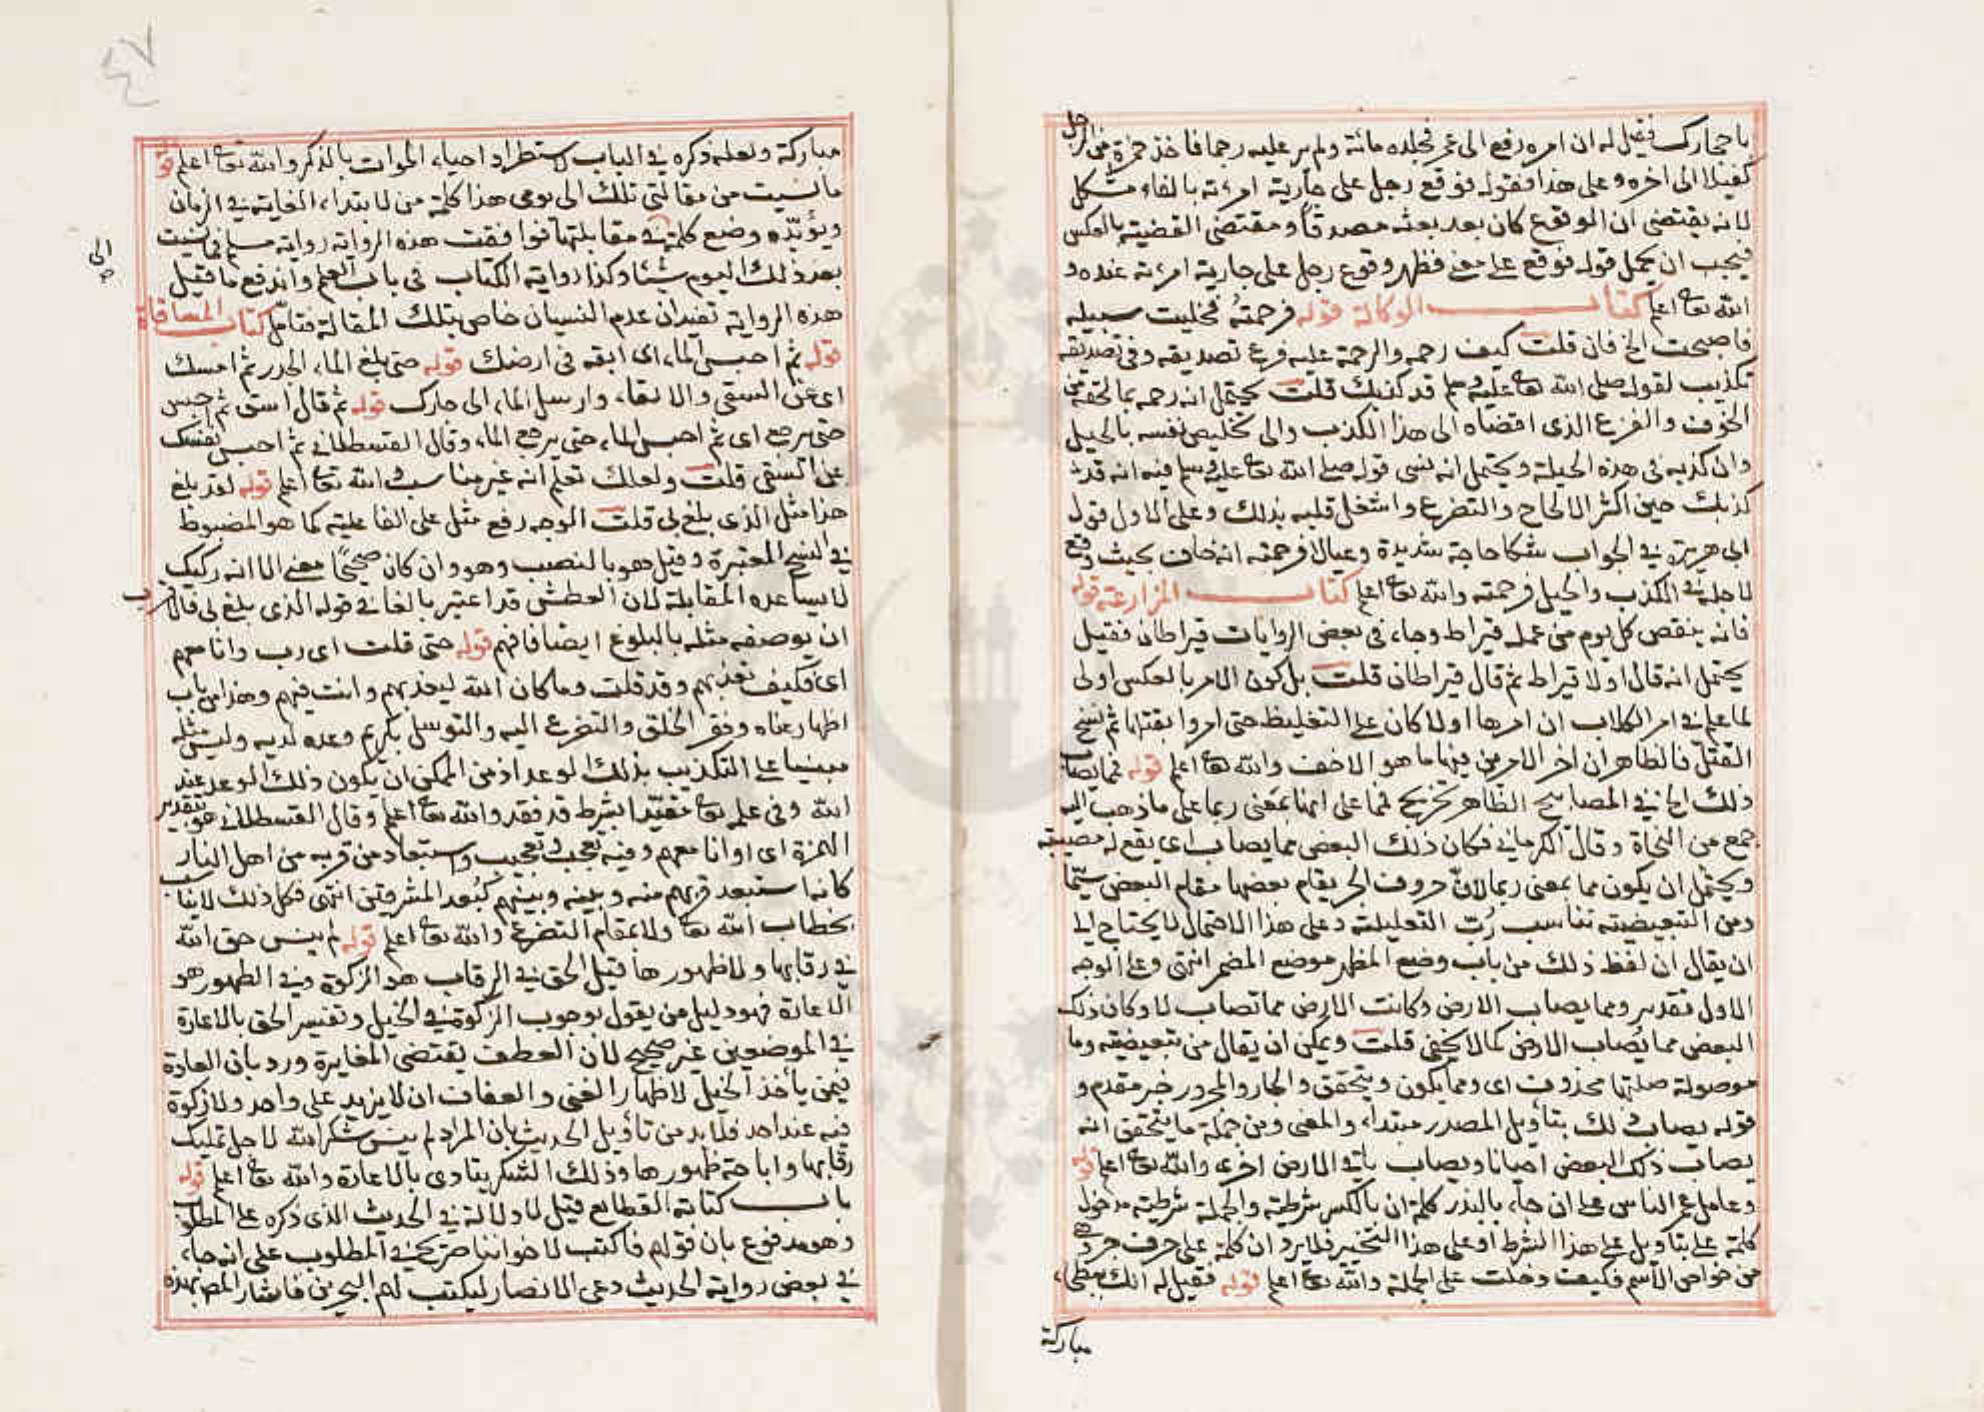 باحجارك فقيل له ان امره رفع الى عمر فجلده مائة ولم ير عليه رجما فاخذ حمزة من الرجل
كفيلا الى اخره وعلى هذا فقوله فوقع رجل على جارية امرءته بالفاء مشكل
لانه يقتضى ان الوقوع كان بعد بعثه مصدقا ومقتضى القضية بالعكس
فيجب ان يحمل قوله فوقع على معنى فظهر وقوع رجل على جارية امرءته عنده و
الله تعا اعلم كتاب الوكالة قوله فرحمته فخليت سبيله
فاصبحت الخ فان قلت كيف رحمه والرحمة عليه فرع تصديقه وفى تصديقه
تكذيب لقوله صلى الله تعا عليه وسلم قد كذبك قلت يحتمل انه رحمه بما لحقه من
الخوف والفزع الذى افضاه الى هذا الكذب والى تخليص نفسه بالحيل
وان كذبه فى هذه الحيلة ويحتمل انه نسى قوله صلى الله تعا عليه وسلم فيه انه قد
كذبك حين اكثر الالحاح والتضرع واشتغل قلبه بذلك وعلى الاول قول
ابى هريرة فى الجواب شكا حاجة شديدة وعيالا فرحمته انه خاف بحيث وقع
لاجله فى الكذب والحيل فرحمته والله تعا اعلم كتاب المزارعة قوله
فانه ينقص كل يوم من عمله قيراط وجاء فى بعض الروايات قيراطان فقيل
يحتمل انه قال اولا قيراط ثم قال قيراطان قلت بل كون الامر بالعكس اولى
لما علم فى امر الكلاب ان امرها اولا كان على التغليظ حتى امروا بقتلها ثم نسخ
القتل فالظاهر ان اخر الامرين فيها ما هو الاخف والله تعا اعلم قوله فمما يصاب
ذلك الخ فى المصابيح الظاهر تخريج فمما على انها بمعنى ربما على ما ذهب اليه
جمع من النحاة وقال الكرمانى فكان ذلك البعض مما يصاب اى يقع له مصيبة
ويحتمل ان يكون مما بمعنى ربما لان حروف الجر يقام بعضها مقام البعض سيما
ومن التبعيضية تناسب رب التعليلة وعلى هذا الاحتمال لا يحتاج الى
ان يقال ان لفظ ذلك من باب وضع المظهر موضع المضمر انتهى وعلى الوجه
الاول تقدير ومما يصاب الارض وكانت الارض مما تصاب لا وكان ذلك
البعض مما يصاب الارض كما لا يخفى قلت ويمكن ان يقال من تبعيضية وما
موصولة صلتها محذوف اى ومما يكون ويتحقق والجار والمجرور خبر مقدم و
قوله يصاب ذلك بتأويل المصدر مبتداء والمعنى ومن جملة ما يتحقق انه
يصاب ذلك البعض احيانا ويصاب باقى الارض اخرى والله تعا اعلم قوله
وعامل عمر الناس على ان جاء بالبذر كلمة ان بالكسر شرطية والجملة شرطية مدخول
كلمة على بتاويل على هذا الشرط او على هذا التخيير فلا يرد ان كلمة على حرف جر وهى
من خواص الاسم فكيف دخلت على الجملة والله تعا اعلم قوله فقيل له انك ببطحاء
مباركة
٤٧
مباركة ولعله ذكره فى الباب لاستطراد احياء الموات بالذكر والله تعا اعلم قوله
ما نسيت من مقالتى تلك الى يومى هذا كلمة من لابتداء الغاية فى الزمان
ويؤيده وضع كلمة فى مقابلتها فوافقت هذه الرواية رواية مسلم فما نسيت
بعد ذلك اليوم شيئا وكذا رواية الكتاب فى باب العلم واندفع ما قيل
هذه الرواية تفيد ان عدم النسيان خاص بتلك المقالة فتامل كتاب المساقاة
قوله ثم احبس الماء اى ابقه فى ارضك قوله حتى بلغ الماء الجدر ثم امسك
اى عن السقى والابقاء وارسل الماء الى جارك قوله ثم قال اسق ثم احبس
حتى يرجع اى ثم احبس الماء حتى يرجع الماء وقال القسطلانى ثم احبس نفسك
عن السقى قلت ولعلك تعلم انه غير مناسب والله تعا اعلم قوله لقد بلغ
هذا مثل الذى بلغ بى قلت الوجه رفع مثل على الفاعلية كما هو المضبوط
فى النسخ المعتبرة وقيل هو بالنصب وهو وان كان صحيحا معنى الا انه ركيك
لا يساعده المقابلة لان العطش قد اعتبر بالغا فى قوله الذى بلغ بى فالاقرب
ان يوصف مثله بالبلوغ ايضا فافهم قوله حتى قلت اى رب وانا معهم
اى فكيف تعذبهم وقد قلت وما كان الله ليعذبهم وانت فيهم وهذا من باب
اظهار غناه وفقر الخلق والتضرع اليه والتوسل بكريم وعده لديه وليس مثله
مبنيا على التكذيب بذلك الوعد اذ من الممكن ان يكون ذلك الوعد عند
الله وفى علمه تعا مقيدا بشرط قد فقد والله تعا اعلم وقال القسطلانى هو بتقدير
الهمزة اى اوانا معهم وفيه تعجب وتعجيب واستبعاد من قربه من اهل النار
كانه استبعد قربهم منه وبينه وبينهم كبعد المشرقين انتهى فكل ذلك لا يناسب
بخطاب الله تعا ولا بمقام التضرع والله تعا اعلم قوله لم ينس حق الله
فى رقابها ولا ظهورها قيل الحق فى الرقاب هو الزكوة وفى الظهور هو
الاعارة فهو دليل من يقول بوجوب الزكوة فى الخيل وتفسير الحق بالاعارة
فى الموضعين غير صحيح لان العطف يقتضى المغايرة ورد بان العادة
فيمن يأخذ الخيل لاظهار الغنى والعفاف ان لا يزيد على واحد ولا زكوة
فيه عند احد فلا بد من تأويل الحديث بان المراد لم ينس شكر الله لاجل تمليك
رقابها واباحة ظهورها وذلك الشكر يتادى بالاعارة والله تعا اعلم قوله
باب كتابة القطايع قيل لا دلالة فى الحديث الذى ذكره على المطلوب
وهو مدفوع بان قولهم فاكتب لاخواننا صريح فى المطلوب على انه جاء
فى بعض رواية الحديث دعى الانصار ليكتب لهم البحرين فاشار المص بهذه